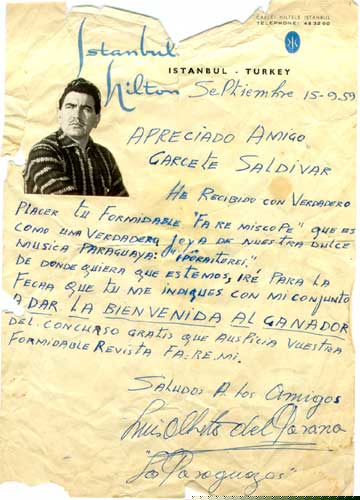 CABLE: HILTELS ISTANBUL
TELEPHONE: 483200
Istanbul
Hilton
ISTANBUL - TURKEY
SePtiembre 15-9-59
APRECIADO AMIGO
GARCETE SALDIVAR
HE RECIBIDO CON VERDADERO
PLACER TU FORMIDABLE "FA RE MISCOPE" QUE ES
COMO UNA VERDADERA JOYA DE NUESTRA DULCE
MUSICA PARAGUAYA: "IPORAITEREI."
DE DONDE QUIERA QUE ESTEMOS, IRÉ PARA LA
FECHA QUE TU ME INDIQUES CON MI CONJUNTO
A DAR LA BIENVENIDA AL GANADOR
DEL CONCURSO GRATIS QUE AUSPICIA VUESTRA
FORMIDABLE REVISTA FA-RE-MI.
SALUDOS A LOS AMIGOS
Luis Alberto del Parana
"Los Paraguayos"